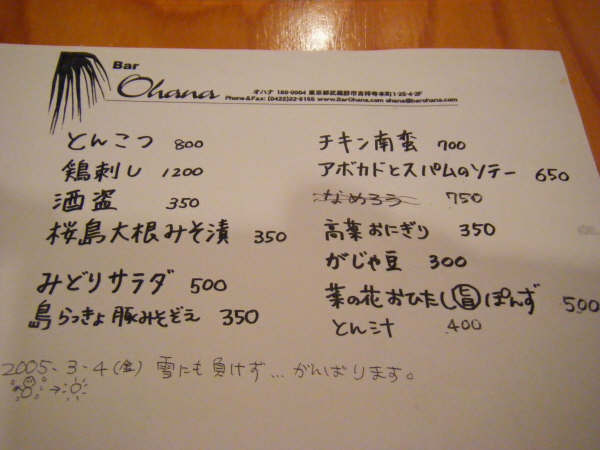 Bar
Ohana
オハナ 180-0004 東京都武蔵野市吉祥寺本町1-25-4-2F
Phone&Fax: (0422)22-6155 www.BarOhana.com ohana@barohana.com
とんこつ 800
鶏刺し 1200
酒盗 350
桜島大根みそ漬 350
みどりサラダ 500
島らっきょ豚みそぞえ 350
チキン南蛮 700
アボカドとスパムのソテー 650
なめろう 750
高菜おにぎり 350
がじゃ豆 300
菜の花おひたし旨ぽんず 500
とん汁 400
2005.3.4(金) 雪にも負けず…がんばります。